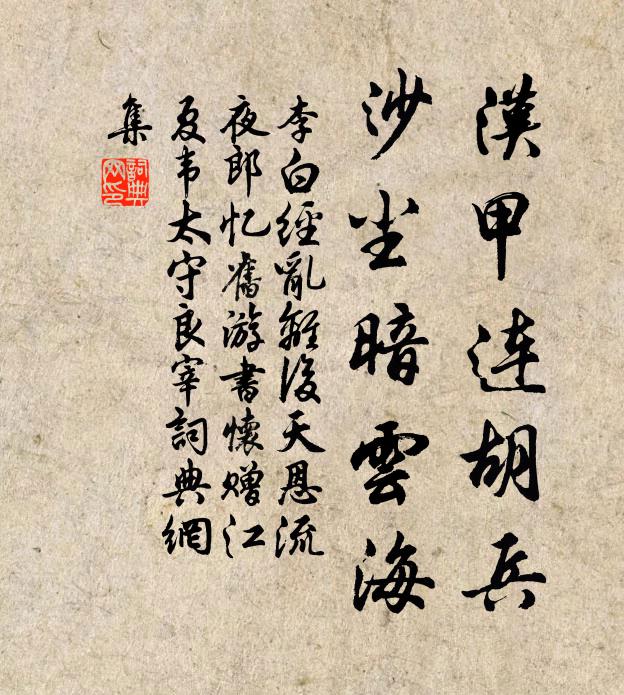 漢甲连胡兵
沙尘暗雲海
李白經亂離後天恩流
夜郎忆舊游書懷赠江
夏韦太守良宰詞典網
集
詞典网印